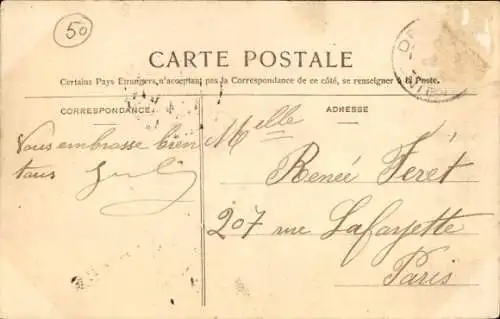 50
CARTE POSTALE
Certains Pays Etrangers n'acceptant pas la Correspondance de ce côté, se renseigner à la Poste.
CORRESPONDANCE
ADRESSE
Vous embrasse bien
tous
Melle
Renée Féret
207 rue Lafayette
Paris